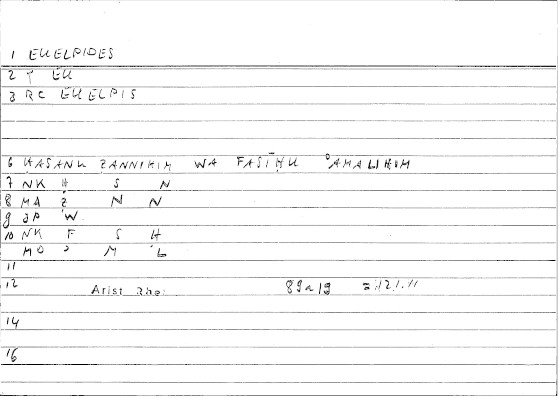 1 EUELPIDES
2 T EU
3 RC EUELPIS
6 ḤASANU ẒANNIHIM WA FASĪḤU ʾAMALIHIM
7 NK Ḥ S N
8 MA Ẓ N N
9 JP W
10 NK F S Ḥ
MO ʾ M L
11
12 Arist Rhe: 89a19
14
16